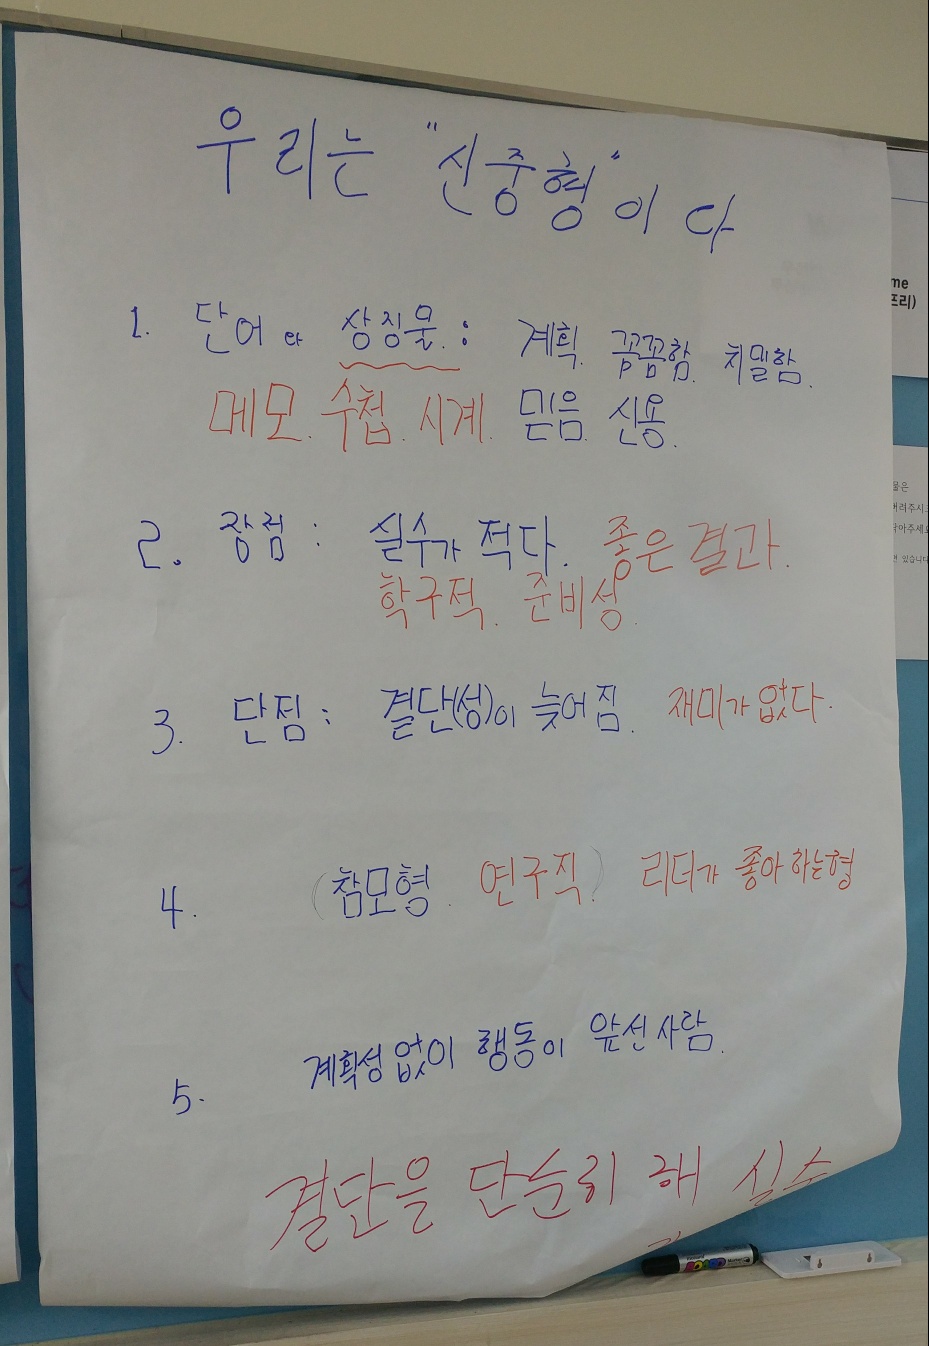 우리는 "신중형"이다
1. 단어와 상징물 : 계획. 꼼꼼함. 치밀함.
메모. 수첩. 시계. 믿음. 신용.
2. 장점 : 실수가 적다. 좋은 결과.
학구적. 준비성.
3. 단점 : 결단(성)이 늦어짐. 재미가 없다.
4. (참모형. 연구직) 리더가 좋아하는형
5. 계획성 없이 행동이 앞선 사람.
결단을 단순히 해 실수
me
프리)